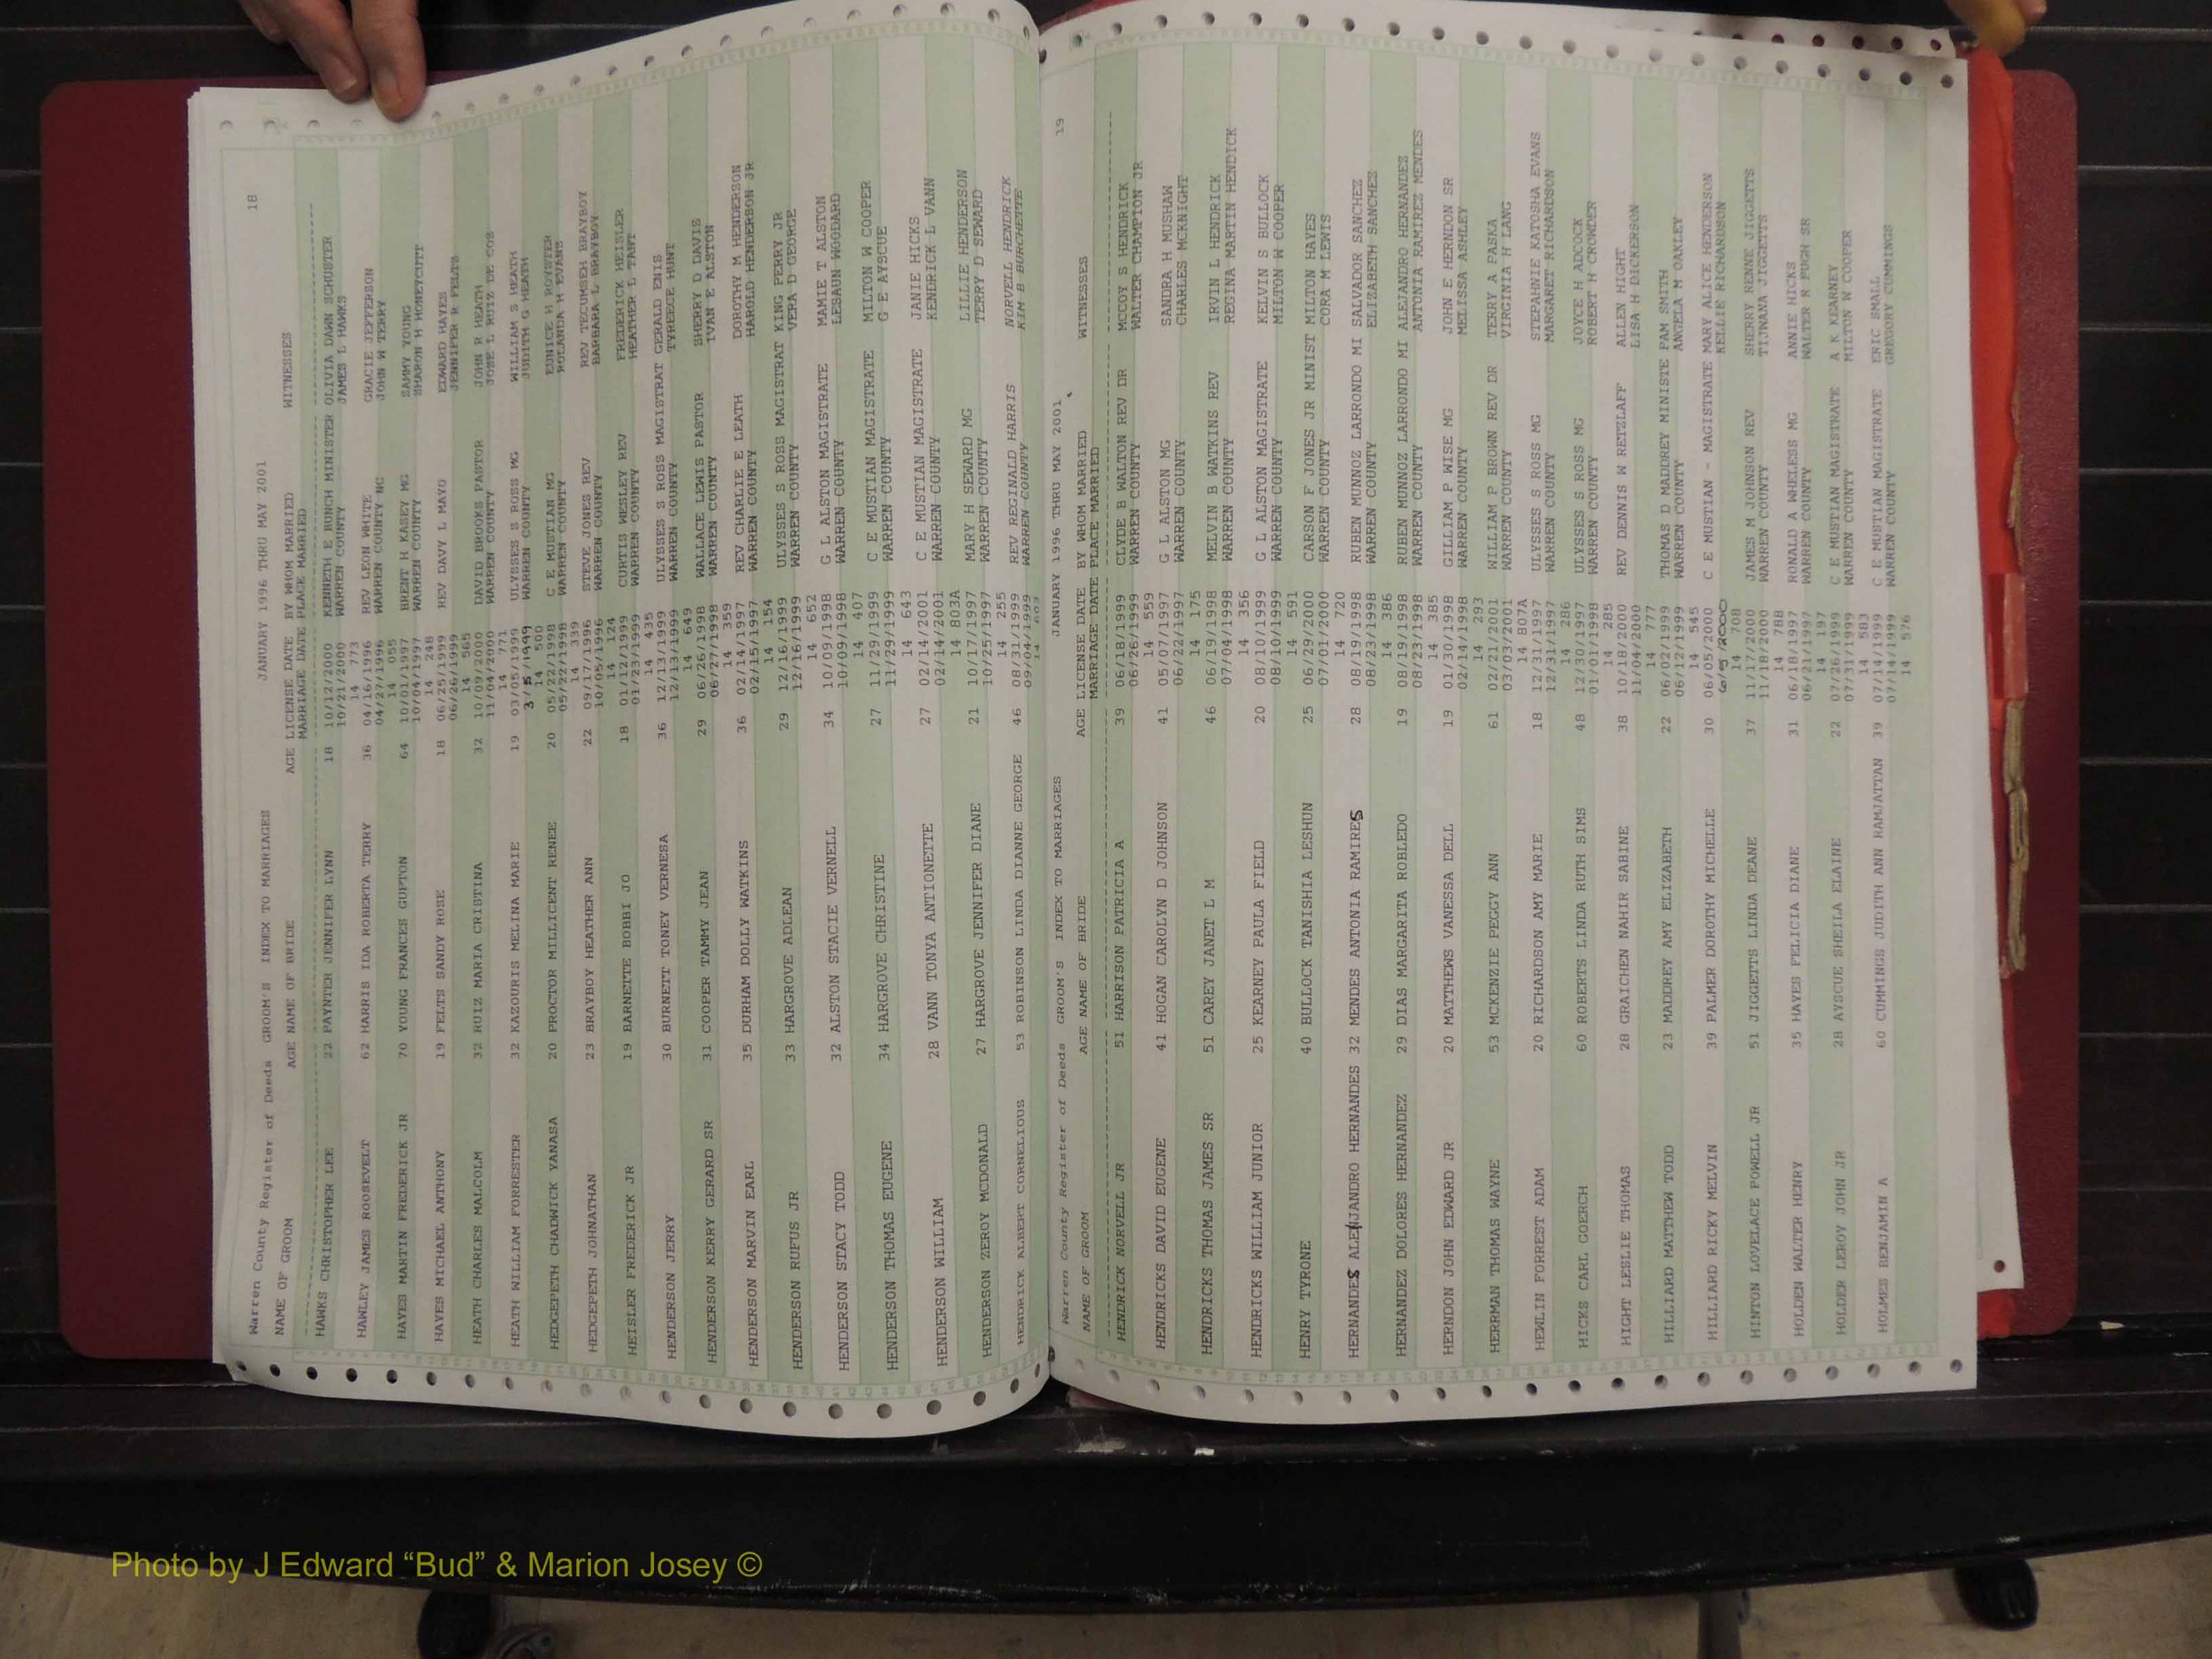 Warren County Register of Deeds GROOM'S INDEX TO MARRIAGES JANUARY 1996 THRU MAY 2001 18
NAME OF GROOM AGE NAME OF BRIDE AGE LICENSE DATE BY WHOM MARRIED WITNESSES
MARRIAGE DATE PLACE MARRIED
HAWKS CHRISTOPHER LEE 22 PAYNTER JENNIFER LYNN 18 10/12/2000 KENNETH E BUNCH MINISTER OLIVIA DAWN SCHUSTER
10/21/2000 WARREN COUNTY JAMES L HAWKS
14 773
HAWLEY JAMES ROSEVELT 62 HARRIS IDA ROBERTA TERRY 36 04/16/1996 REV LEON WHITE GRACIE JEFFERSON
04/27/1996 WARREN COUNTY NC JOHN W TERRY
14 055
HAYES MARTIN FREDERICK JR 70 YOUNG FRANCES GUPTON 64 10/01/1997 BRENT H KASEY MG SAMMY YOUNG
10/04/1997 WARREN COUNTY SHARON H HONEYCUTT
14 248
HAYES MICHAEL ANTHONY 19 FELTS SANDY ROSE 18 06/25/1999 REV DAVY L MAYO EDWARD HAYES
06/26/1999 JENNIFER R FELTS
14 565
HEATH CHARLES MALCOLM 32 RUIZ MARIA CRISTINA 32 10/09/2000 DAVID BROOKS PASTOR JOHN R HEATH
11/04/2000 WARREN COUNTY JOSE L RUIZ DE COS
14 771
HEATH WILLIAM FORRESTER 32 KAZOURIS MELINA MARIE 19 03/05/1999 ULYSSES S ROSS MG WILLIAM S HEATH
3/5/1999 WARREN COUNTY JUDITH G HEATH
14 500
HEDGEPETH CHADWICK YANASA 20 PROCTOR MILLICENT RENEE 20 05/22/1998 C E MUSTIAN MG EUNICE H ROYSTER
05/22/1998 WARREN COUNTY ROLANDA H EVANS
14 339
HEDGEPETH JOHNATHAN 23 BRAYBOY HEATHER ANN 22 09/17/1996 STEVE JONES REV REV TECUMSEH BRAYBOY
10/05/1996 WARREN COUNTY BARBARA L BRAYBOY
14 124
HEISLER FREDERICK JR 19 BARNETTE BOBBI JO 18 01/12/1999 CURTIS WESLEY REV FREDERICK HEISLER
01/23/1999 WARREN COUNTY HEATHER L TANT
14 435
HENDERSON JERRY 30 BURNETT TONEY VERNESA 36 12/13/1999 ULYSSES S ROSS MAGISTRAT GERALD ENIS
12/13/1999 WARREN COUNTY TYREECE HUNT
14 649
HENDERSON KERRY GERARD SR 31 COOPER TAMMY JEAN 29 06/26/1998 WALLACE LEWIS PASTOR SHERRY D DAVIS
06/27/1998 WARREN COUNTY IVAN E ALSTON
14 359
HENDERSON MARVIN EARL 35 DURHAM DOLLY WATKINS 36 02/14/1997 REV CHARLIE E LEATH DOROTHY M HENDERSON
02/15/1997 WARREN COUNTY HAROLD HENDERSON JR
14 154
HENDERSON RUFUS JR 33 HARGROVE ADLEAN 29 12/16/1999 ULYSSES S ROSS MAGISTRAT KING PERRY JR
12/16/1999 WARREN COUNTY VERA D GEORGE
14 652
HENDERSON STACY TODD 32 ALSTON STACIE VERNELL 34 10/09/1998 G L ALSTON MAGISTRATE MAMIE T ALSTON
10/09/1998 WARREN COUNTY LESAUN WOODARD
14 407
HENDERSON THOMAS EUGENE 34 HARGROVE CHRISTINE 27 11/29/1999 C E MUSTIAN MAGISTRATE MILTON W COOPER
11/29/1999 WARREN COUNTY G E AYSCUE
14 643
HENDERSON WILLIAM 28 VANN TONYA ANTIONETTE 27 02/14/2001 C E MUSTIAN MAGISTRATE JANIE HICKS
02/14/2001 WARREN COUNTY KENDRICK L VANN
14 803A
HENDERSON ZEROY MCDONALD 27 HARGROVE JENNIFER DIANE 21 10/17/1997 MARY H SEWARD MG LILLIE HENDERSON
10/25/1997 WARREN COUNTY TERRY D SEWARD
14 255
HENDRICK ALBERT CORNELIOUS 53 ROBINSON LINDA DIANNE GEORGE 46 08/31/1999 REV REGINALD HARRIS NORVELL HENDRICK
09/04/1999 WARREN COUNTY KIM B BURCHETTE
Warren County Register of Deeds GROOM'S INDEX TO MARRIAGES JANUARY 1996 THRU MAY 2001 19
NAME OF GROOM AGE NAME OF BRIDE AGE LICENSE DATE BY WHOM MARRIED WITNESSES
MARRIAGE DATE PLACE MARRIED
HENDRICK NORVELL JR 51 HARRISON PATRICIA A 39 06/18/1999 CLYDE B WALTON REV DR MCCOY S HENDRICK
06/26/1999 WARREN COUNTY WALTER CHAMPTON JR
14 559
HENDRICKS DAVID EUGENE 41 HOGAN CAROLYN D JOHNSON 41 05/07/1997 G L ALSTON MG SANDRA H MUSHAW
06/22/1997 WARREN COUNTY CHARLES MCKNIGHT
14 175
HENDRICKS THOMAS JAMES SR 51 CAREY JANET L M 46 06/19/1998 MELVIN B WATKINS REV IRVIN L HENDRICK
07/04/1998 WARREN COUNTY REGINA MARTIN HENDICK
14 356
HENDRICKS WILLIAM JUNIOR 25 KEARNEY PAULA FIELD 20 08/10/1999 G L ALSTON MAGISTRATE KELVIN S BULLOCK
08/10/1999 WARREN COUNTY MILTON W COOPER
14 591
HENRY TYRONE 40 BULLOCK TANISHIA LESHUN 25 06/29/2000 CARSON F JONES JR MINIST MILTON HAYES
07/01/2000 WARREN COUNTY CORA M LEWIS
14 720
HERNANDES ALEJANDRO HERNANDES 32 MENDES ANTONIA RAMIRES 28 08/19/1998 RUBEN MUNNOZ LARRONDO MI SALVADOR SANCHEZ
08/23/1998 WARREN COUNTY ELIZABETH SANCHEZ
14 386
HERNANDEZ DOLORES HERNANDEZ 29 DIAS MARGARITA ROBLEDO 19 08/19/1998 RUBEN MUNNOZ LARRONDO MI ALEJANDRO HERNANDES
08/23/1998 WARREN COUNTY ANTONIA RAMIREZ MENDES
14 385
HERNDON JOHN EDWARD JR 20 MATTHEWS VANESSA DELL 19 01/30/1998 GILLIAM P WISE MG JOHN E HERNDON SR
02/14/1998 WARREN COUNTY MELISSA ASHLEY
14 293
HERRMAN THOMAS WAYNE 53 MCKENZIE PEGGY ANN 61 02/21/2001 WILLIAM P BROWN REV DR TERRY A PASKA
03/03/2001 WARREN COUNTY VIRGINIA H LANG
14 807A
HEWLIN FORREST ADAM 20 RICHARDSON AMY MARIE 18 12/31/1997 ULYSSES S ROSS MG STEPAHNIE KATOSHA EVANS
12/31/1997 WARREN COUNTY MARGARET RICHARDSON
14 286
HICKS CARL GOERCH 60 ROBERTS LINDA RUTH SIMS 48 12/30/1997 ULYSSES S ROSS MG JOYCE H ADCOCK
01/01/1998 WARREN COUNTY ROBERT H CROWDER
14 285
HIGHT LESLIE THOMAS 28 GRAICHEN NAHIR SABINE 38 10/18/2000 REV DENNIS W RETZLAFF ALLEN HIGHT
11/04/2000 LISA H DICKERSON
14 777
HILLIARD MATTHEW TODD 23 MADDREY AMY ELIZABETH 22 06/02/1999 THOMAS D MADDREY MINISTE PAM SMITH
06/12/1999 WARREN COUNTY ANGELA M OAKLEY
14 545
HILLIARD RICKY MELVIN 39 PALMER DOROTHY MICHELLE 30 06/05/2000 C E MUSTIAN - MAGISTRATE MARY ALICE HENDERSON
6/5/2000 KELLIE RICHARDSON
14 708
HINTON LOVELACE POWELL JR 51 JIGGETTS LINDA DEANE 37 11/17/2000 JAMES M JOHNSON REV SHERRY RENNE JIGGETTS
11/18/2000 WARREN COUNTY TIJWANA JIGGETTS
14 788
HOLDEN WALTER HENRY 35 HAYES FELICIA DIANE 31 06/18/1997 RONALD A WHELESS MG ANNIE HICKS
06/21/1997 WARREN COUNTY WALTER R PUGH SR
14 197
HOLDER LEROY JOHN JR 28 AYSCUE SHEILA ELAINE 22 07/26/1999 C E MUSTIAN MAGISTRATE A K KEARNEY
07/31/1999 WARREN COUNTY MILTON W COOPER
14 583
HOLMES BENJAMIN A 60 CUMMINGS JUDITH ANN RAMJATTAN 39 07/14/1999 C E MUSTIAN MAGISTRATE ERIC SMALL
07/14/1999 WARREN COUNTY GREGORY CUMMINGS
14 576
Photo by J Edward “Bud” & Marion Josey ©